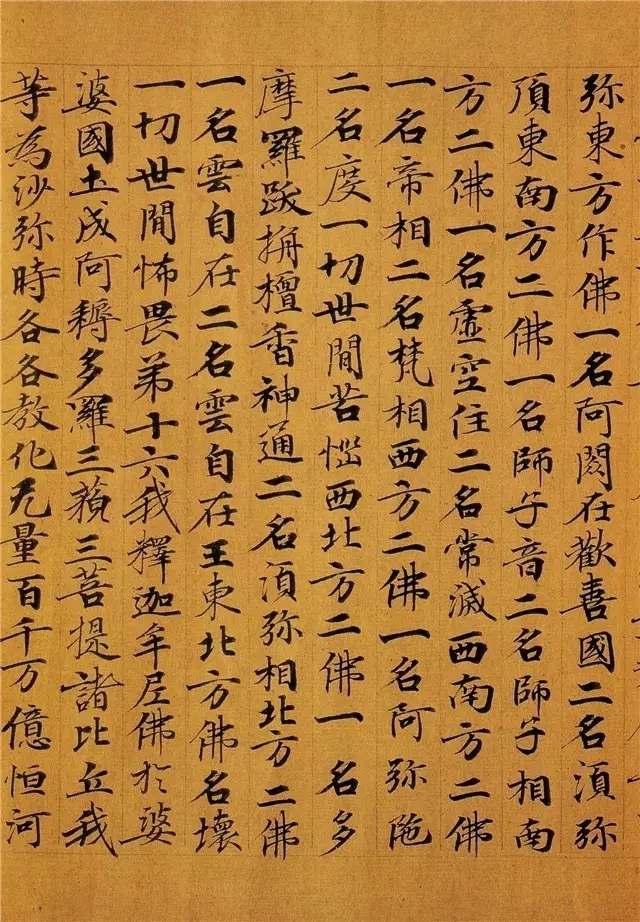 弥東方作佛一名阿閦在歡喜國二名湏弥
頂東南方二佛一名師子音二名師子相南
方二佛一名虛空住二名常滅西南方二佛
一名帝相二名梵相西方二佛一名阿弥陁
二名度一切世閒苦惱西北方二佛一名多
摩羅跋栴檀香神通二名湏弥相北方二佛
一名雲自在二名雲自在王東北方佛名壞
一切世閒怖畏弟十六我釋迦牟尼佛於娑
婆國土成阿耨多羅三藐三菩提諸比丘我
等為沙弥時各各教化无量百千万億恒河